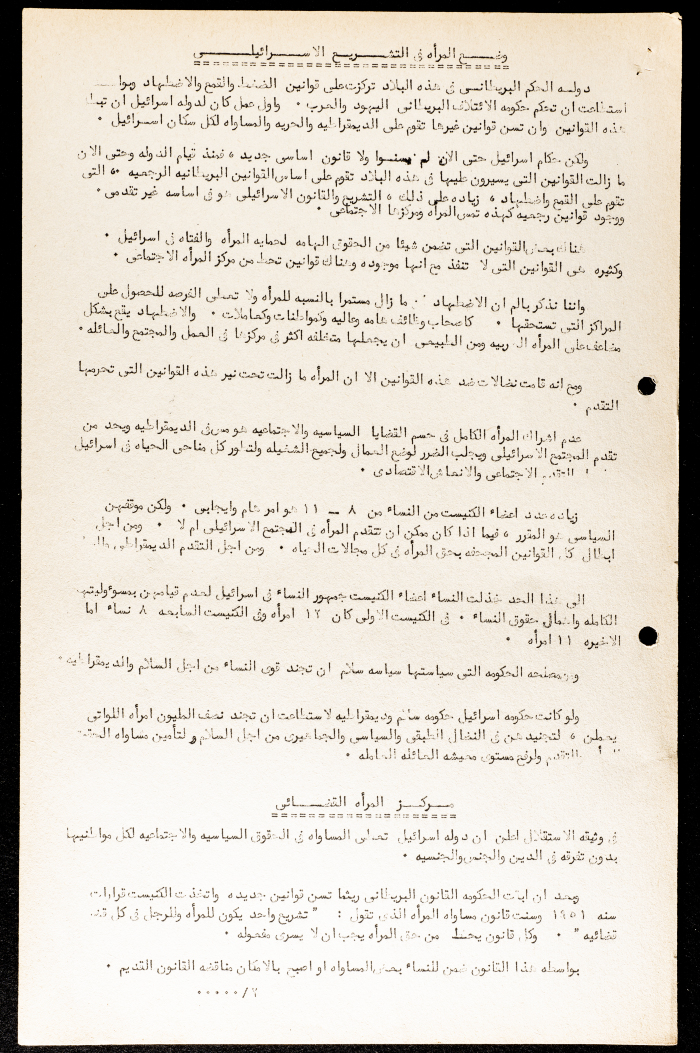 وضع المرأه في التشريع الاسرائيلي
دوله الحكم البريطاني في هذه البلاد تركزت على قوانين الضغط والقمع والاضطهاد
استطاعت ان تحكم حكومه الائتلاف البريطاني اليهود والعرب ٠ واول عمل كان لدوله اسرائيل ان
هذه القوانين وان تسن قوانين غيرها تقوم على الديمقراطيه والحريه والمساواه لكل سكان اسرائيل ٠
ولكن حكام اسرائيل حتى الان لم يسنوا ولا قانون اساسي جديد ، فمنذ قيام الدوله وحتى الان
ما زالت القوانين التي يسيرون عليها في هذه البلاد تقوم على اساس القوانين البريطانيه الرجعيه ٠٠ التي
تقوم على القمع واضطهاد ، زياده على ذلك ، التشريع والقانون الاسرائيلي هو في اساسه غير تقدمي ٠
ووجود قوانين رجعيه كهذه تمس المرأه ومركزها الاجتماعي ٠
هناك بعض القوانين التي تضمن شيئا من الحقوق الهامه لحمايه المرأه والفتاه في اسرائيل ٠
وكثيره هي القوانين التي لا تنفذ مع انها موجوده وهناك قوانين تحط من مركز المرأه الاجتماعي ٠
واننا نذكر بالم ان الاضطهاد ٠٠ ما زال مستمرا بالنسبه للمرأه ولا تعطى الفرصه للحصول على
المراكز التي تستحقها ٠ كاصحاب وظائف هامه وعاليه وكمواطنات وكعاملات ٠ والاضطهاد يقع بشكل
مضاعف على المرأه العربيه ومن الطبيعي ان يجعلها متخلفه اكثر في مركزها في العمل والمجتمع والعائله ٠
ومع انه قامت نضالات ضد هذه القوانين الا ان المرأه ما زالت تحت نير هذه القوانين التي تحرمها
التقدم ٠
عدم اشراك المرأه الكامل في حسم القضايا السياسيه والاجتماعيه هو مس في الديمقراطيه ويحد من
تقدم المجتمع الاسرائيلي ويجلب الضرر لوضع العمال ولجميع الشغيله ولتطور كل مناحي الحياه في اسرائيل
التقدم الاجتماعي والانعاش الاقتصادي ٠
زياده عدد اعضاء الكنيست من النساء من ٨ ــ ١١ هو امر هام وايجابي ٠ ولكن موقفهن
السياسي هو المقرر ، فيما اذا كان ممكن ان تتقدم المرأه في المجتمع الاسرائيلي ام لا ٠ ومن اجل
ابطال كل القوانين المجحفه بحق المرأه في كل مجالات الحياه ٠ ومن اجل التقدم الديمقراطي
الى هذا الحد خذلت النساء اعضاء الكنيست جمهور النساء في اسرائيل لعدم قيامهن بمسؤوليتهن
الكامله واهمالهن حقوق النساء ٠ في الكنيست الاولى كان ١٢ امرأه وفي الكنيست السابعه ٨ نساء اما
الاخيره ١١ امرأه ٠
ومن مصلحه الحكومه التي سياستها سياسه سلام ان تجند قوى النساء من اجل السلام والديمقراطيه ٠
ولو كانت حكومه اسرائيل حكومه سلام وديمقراطيه لاستطاعت ان تجند نصف المليون امرأه اللواتي
يعملن ، لتجنيدهن في النضال الطبقي والسياسي والجماهيري من اجل السلام و لتأمين مساواه
والتقدم ولرفع مستوى معيشه العائله العامله ٠
مركز المرأه القضائي
في وثيقه الاستقلال اعلن ان دوله اسرائيل تعطى المساواه في الحقوق السياسيه والاجتماعيه لكل مواطنيها
بدون تفرقه في الدين والجنس والجنسيه ٠
وبعد ان ابقت الحكومه القانون البريطاني ريثما تسن قوانين جديده واتخذت الكنيست قرارات
سنه ١٩٥١ وسنت قانون مساواه المرأه الذي تقول : " تشريع واحد يكون للمرأه وللرجل في كل
قضائيه " ٠ وكل قانون يحط من حق المرأه يجب ان لا يسرى مفعوله ٠
بواسطه هذا القانون ضمن للنساء بعض المساواه او اصبح بالامكان مناقضه القانون القديم ٠
٢/٠٠٠٠٠